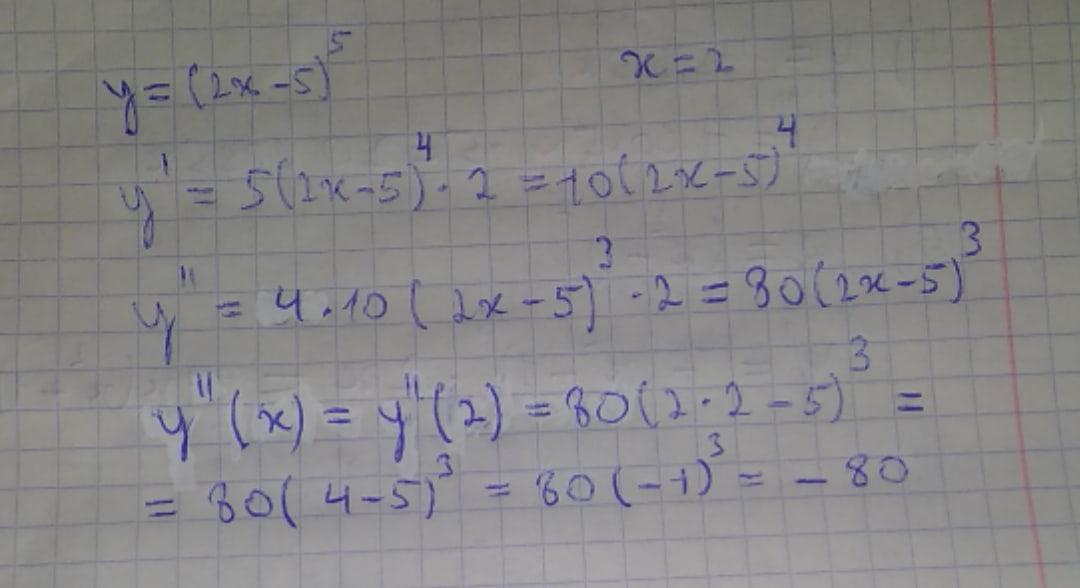 y = (2x-5)^5 x = 2
y' = 5(2x-5)^4 · 2 = 10(2x-5)^4
y'' = 4·10(2x-5)^3 · 2 = 80(2x-5)^3
y''(x) = y''(2) = 80(2·2-5)^3 =
= 80(4-5)^3 = 80(-1)^3 = -80